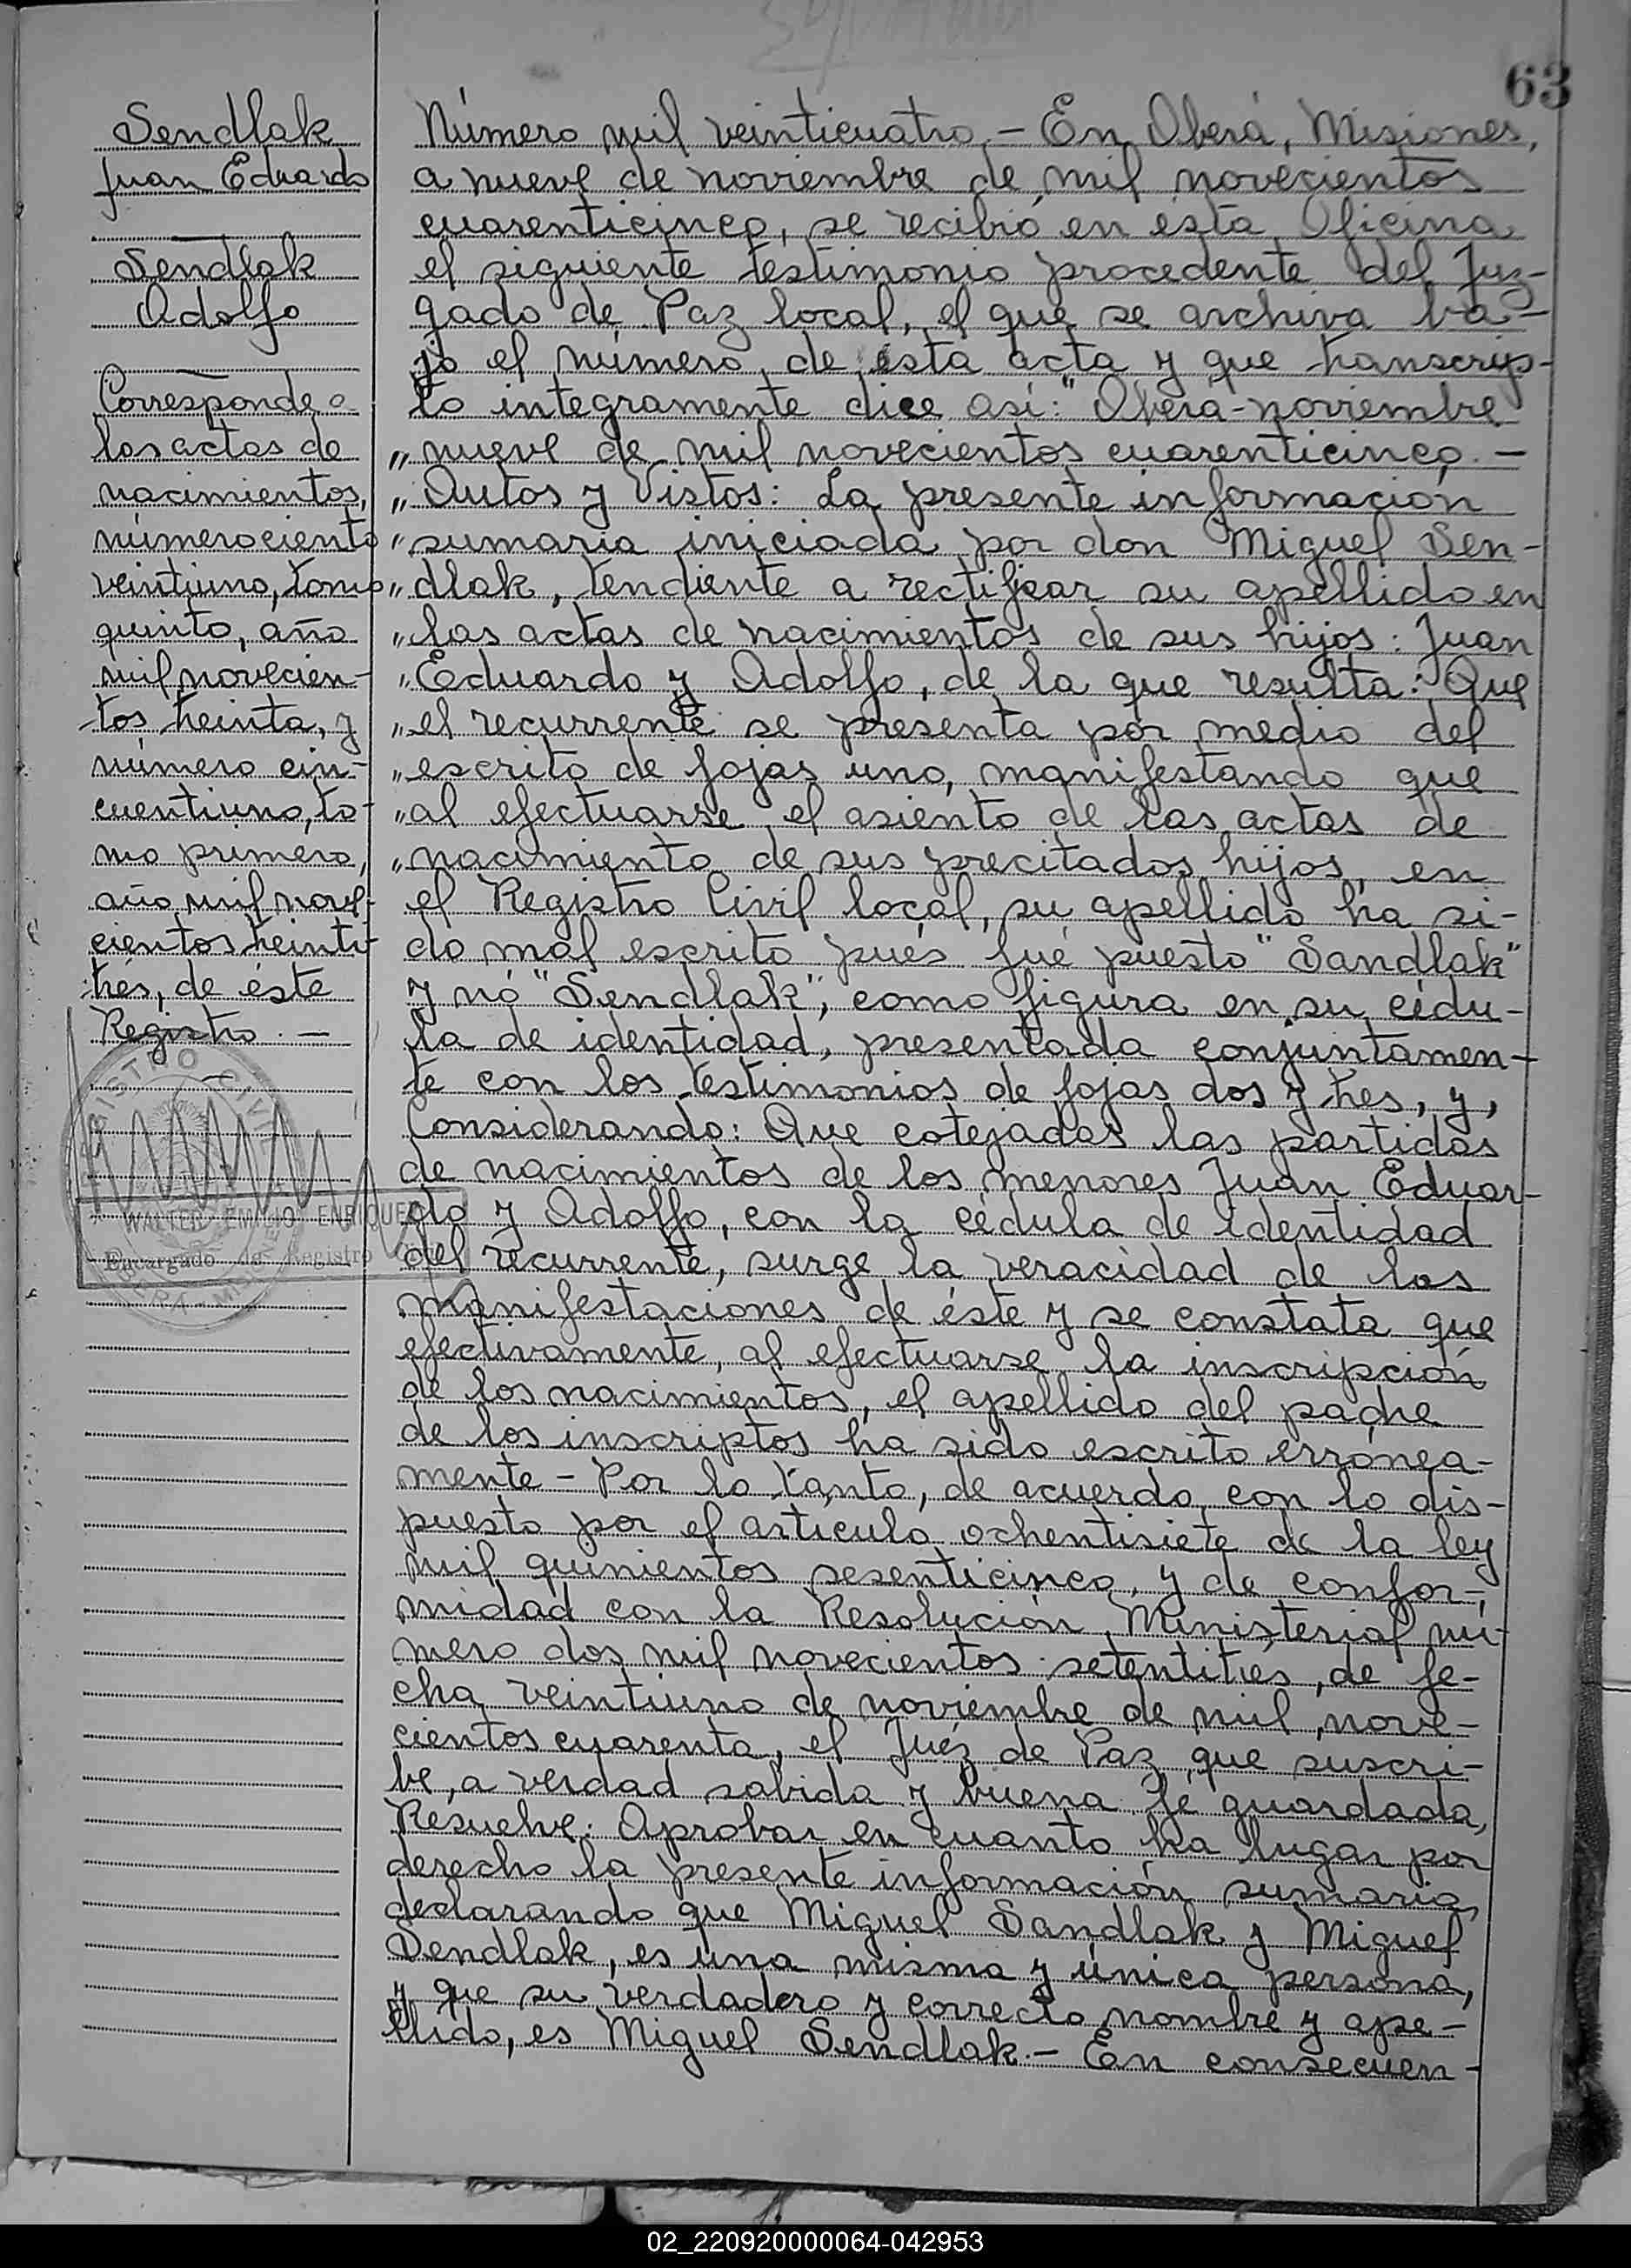 63
Sendlak
Juan Eduardo
Sendlak
Adolfo
Corresponde a
las actas de
nacimientos,
número ciento
veintiuno, tomo
quinto, año
mil novecien-
tos treinta, y
número cin-
cuentiuno, to-
mo primero,
año mil nove-
cientos treinti-
trés, de éste
Registro. —
REGISTRO CIVIL
WALTER EMILIO ENRIQUEZ
Encargado de Registro Civil
OBERA - MISIONES
Número mil veinticuatro. — En Oberá, Misiones,
a nueve de noviembre de mil novecientos
cuarenticinco, se recibió en ésta Oficina
el siguiente testimonio procedente del Juz-
gado de Paz local, el que se archiva ba-
jo el número de ésta acta y que transcrip-
to integramente dice así: "Oberá - noviembre
" nueve de mil novecientos cuarenticinco. —
" Autos y Vistos: La presente información
" sumaria iniciada por don Miguel Sen-
" dlak, tendiente a rectificar su apellido en
" las actas de nacimientos de sus hijos: Juan
" Eduardo y Adolfo, de la que resulta: Que
" el recurrente se presenta por medio del
" escrito de fojas uno, manifestando que
" al efectuarse el asiento de las actas de
" nacimiento de sus precitados hijos, en
el Registro Civil local, su apellido ha si-
do mal escrito pués fué puesto "Sandlak"
y nó "Sendlak", como figura en su cédu-
la de identidad, presentada conjuntamen-
te con los testimonios de fojas dos y tres, y,
Considerando: Que cotejadas las partidas
de nacimientos de los menores Juan Eduar-
do y Adolfo, con la cédula de identidad
del recurrente, surge la veracidad de las
manifestaciones de éste y se constata que
efectivamente, al efectuarse la inscripción
de los nacimientos, el apellido del padre
de los inscriptos ha sido escrito erronea-
mente - Por lo tanto, de acuerdo con lo dis-
puesto por el artículo ochentisiete de la ley
mil quinientos sesenticinco, y de confor-
midad con la Resolución Ministerial nú-
mero dos mil novecientos setentitrés, de fe-
cha veintiuno de noviembre de mil nove-
cientos cuarenta, el Juéz de Paz que suscri-
be, a verdad sabida y buena fé guardada,
Resuelve: Aprobar en cuanto ha lugar por
derecho la presente información sumaria,
declarando que Miguel Sandlak y Miguel
Sendlak, es una misma y única persona,
y que su verdadero y correcto nombre y ape-
llido, es Miguel Sendlak. — En consecuen-
02_220920000064-042953